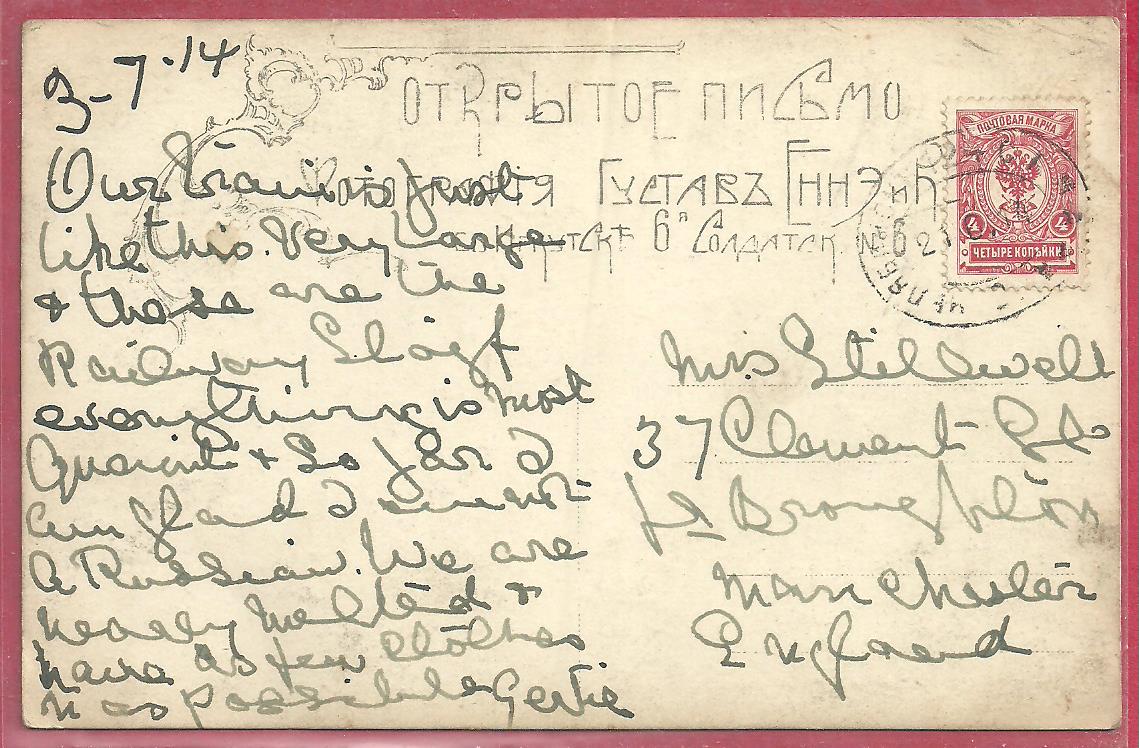 3-7-14
ОТКРЫТОЕ ПИСЬМО
ГУСТАВЪ ЕННЭ и К
ИРКУТСКЪ 6я СОЛДАТСК.
ПОЧТОВАЯ МАРКА
4 4
ЧЕТЫРЕ КОПѢЙКИ
Our train is just
like this. Very Large
& these are the
Railway Staff
everything is most
Quaint & So far I
am glad I am not
a Russian. We are
nearly melted &
have as few clothes
as possible Gertie
Mrs Stillwell
37 Clement
Broughton
Manchester
England